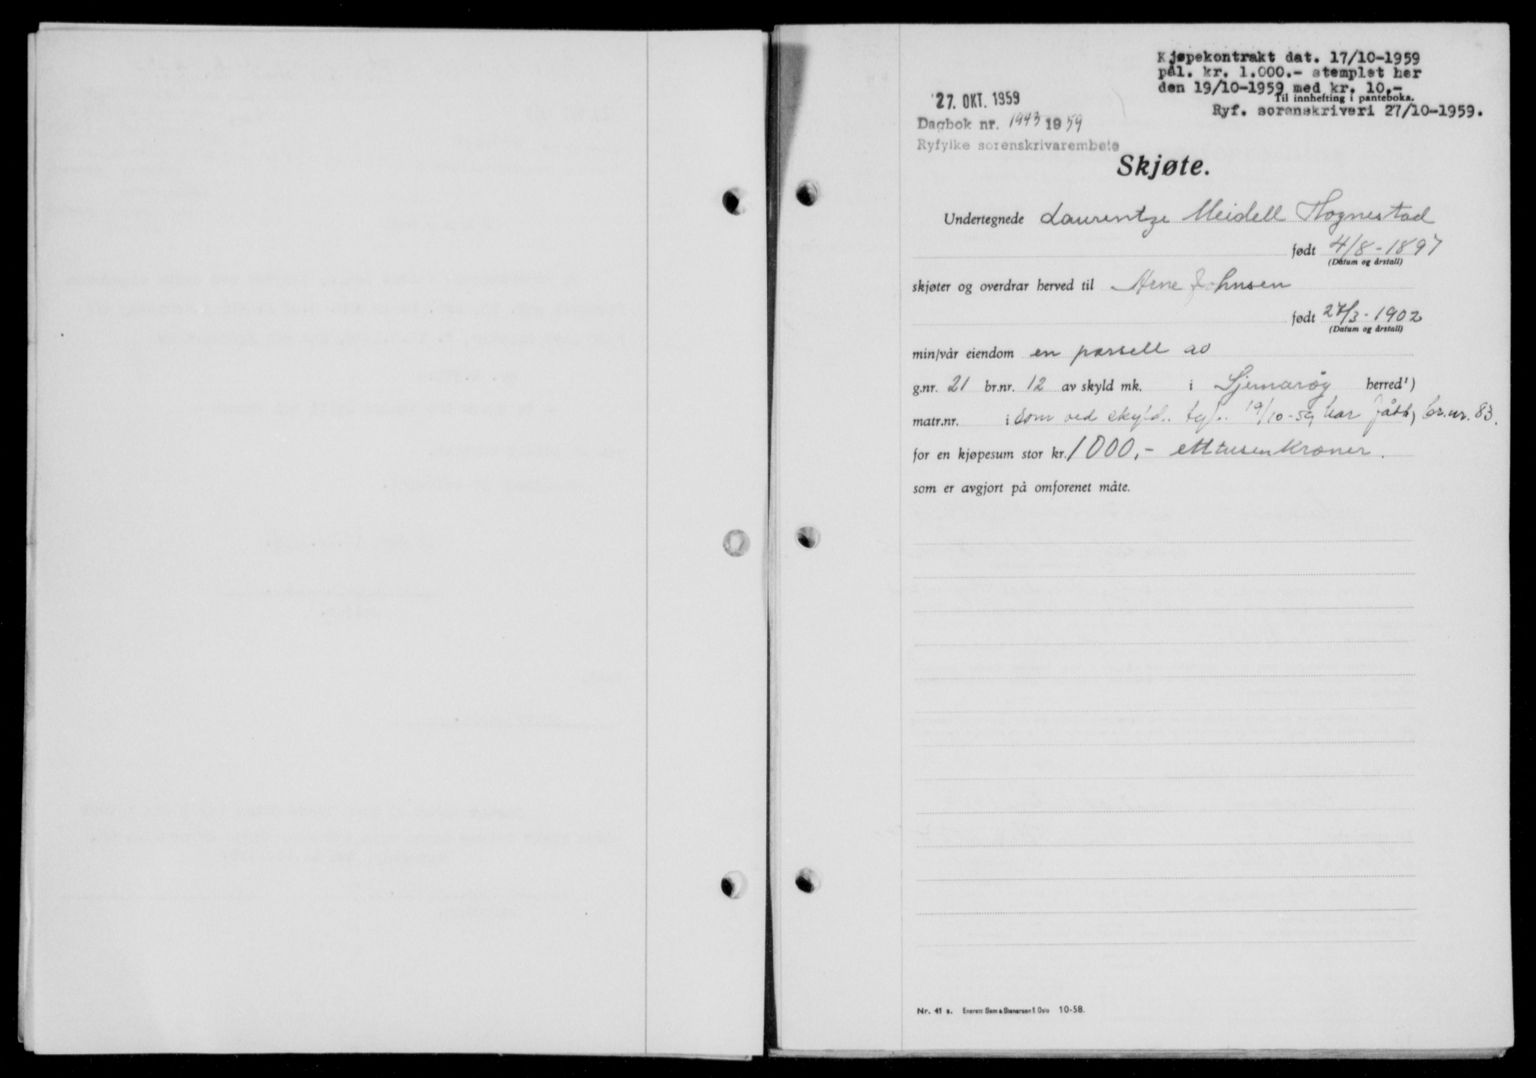 Kjøpekontrakt dat. 17/10-1959
pål. kr. 1.000.- stemplet her
den 19/10-1959 med kr. 10,-
Til innhefting i panteboka.
Ryf. sorenskriveri 27/10-1959.
27. OKT. 1959
Dagbok nr. 1943 1959
Ryfylke sorenskrivarembete
Skjøte.
Undertegnede Laurentze Meidell Hognestad
født 4/8-1897
(Datum og årstall)
skjøter og overdrar herved til Arne Johnsen
født 27/3-1902
(Datum og årstall)
min/vår eiendom en parsell av
g.nr. 21 br.nr. 12 av skyld mk. i Sjernarøy herred¹)
matr.nr. i som ved skyld. 19/10-59 har fått br.nr. 83.
for en kjøpesum stor kr. 1000,- ettusenkroner.
som er avgjort på omforenet måte.
Nr. 41 a. Enerett Sem & Stenersen Oslo 10-58.